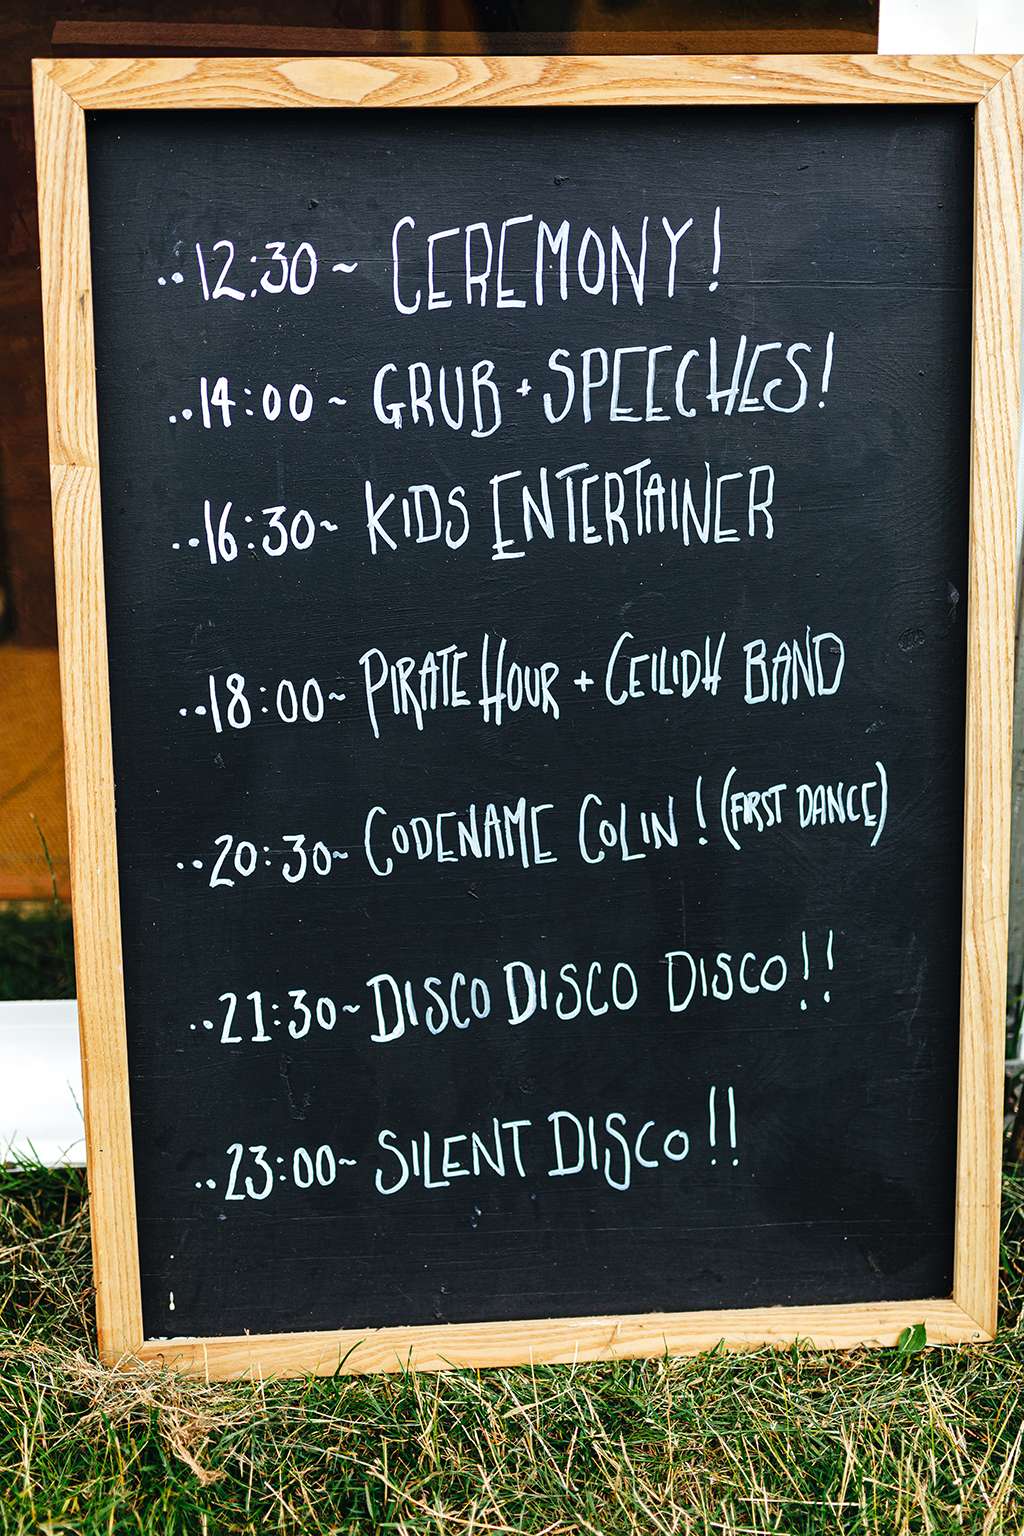 ..12:30 ~ CEREMONY!
..14:00 ~ GRUB + SPEECHES!
..16:30~ KIDS ENTERTAINER
..18:00~ PIRATE HOUR + CEILIDH BAND
..20:30~ CODENAME COLIN! (FIRST DANCE)
..21:30~ DISCO DISCO DISCO!!
..23:00~ SILENT DISCO!!